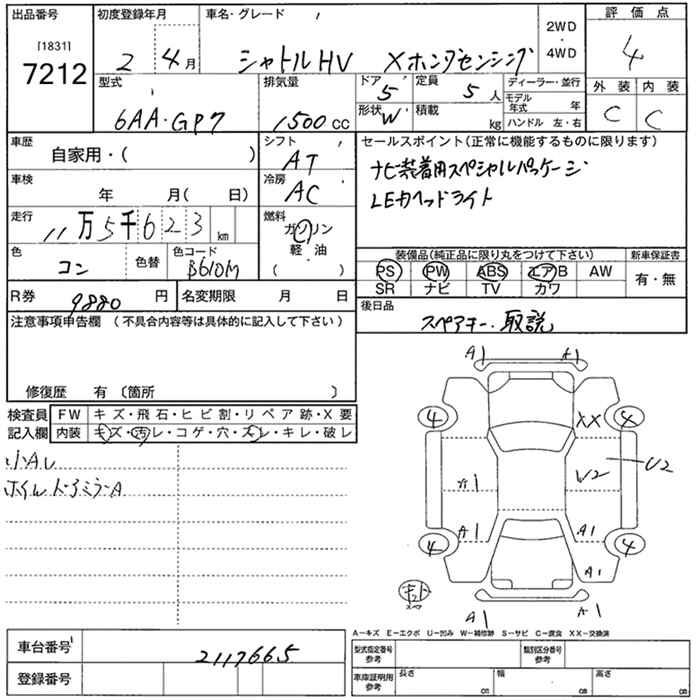 出品番号 初度登録年月 車名・グレード 評価点
[1831]
7212
2 4月 シャトルHV Xホンダセンシング 2WD・4WD 4
型式 排気量 ドア 5 定員 5人 ディーラー・並行 外装 内装
6AA・GP7 1500cc 形状 W 積載 kg モデル年式 年 C C
ハンドル 左・右
車歴 シフト セールスポイント(正常に機能するものに限ります)
自家用・( ) AT ナビ装着用スペシャルパッケージ
車検 冷房 LEDヘッドライト
年 月( 日) AC
走行 燃料
11万5千623km ガソリン
軽・油
( )
色 色替 色コード 装備品(純正品に限り丸をつけて下さい) 新車保証書
コン B610M PS PW ABS エアB AW 有・無
SR ナビ TV カワ
R券 9880円 名変期限 月 日 後日品
スペアキー・取説
注意事項申告欄(不具合内容等は具体的に記入して下さい)
修復歴 有(箇所 )
検査員 FW キズ・飛石・ヒビ割・リペア跡・X要
記入欄 内装 キズ・汚レ・コゲ・穴・スレ・キレ・破レ
小AL
ホイル ドアミラーA
A1 A1
4 XX 4
A1 W2 U2
A1 A1
4 4
A1
キット
スペア
A1 A1
A−キズ E−エクボ U−凹み W−補修跡 S−サビ C−腐食 XX−交換済
車台番号 2117665 型式指定番号 参考 類別区分番号 参考
登録番号 車庫証明用 参考 長さ cm 幅 cm 高さ cm